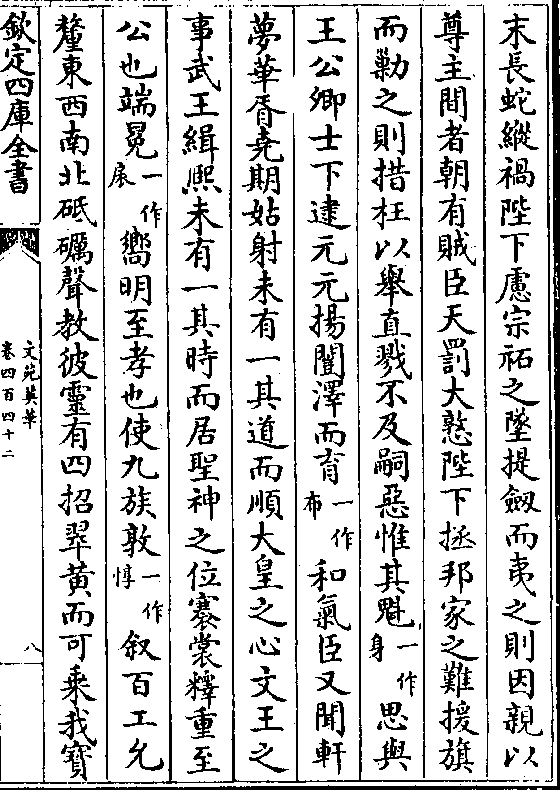 末長蛇縱禍陛下慮宗祏之墜提劔而夷之則因親以
尊主間者朝有賊臣天罰大憝陛下拯邦家之難援旗
而勦之則措枉以舉直戮不及嗣惡惟其魁一作身思與
王公卿士下逮元元揚闓澤而育一作布和氣臣又聞軒
夢華胥堯期姑射未有一其道而順大皇之心文王之
事武王緝熙未有一其時而居聖神之位褰裳釋重至
公也端冕一作扆嚮明至孝也使九族敦一作惇叙百工允
釐東西南北砥礪聲教彼靈有四招翠黄而可乘我寶
欽定四庫全書
文苑英華
卷四百四十二
八